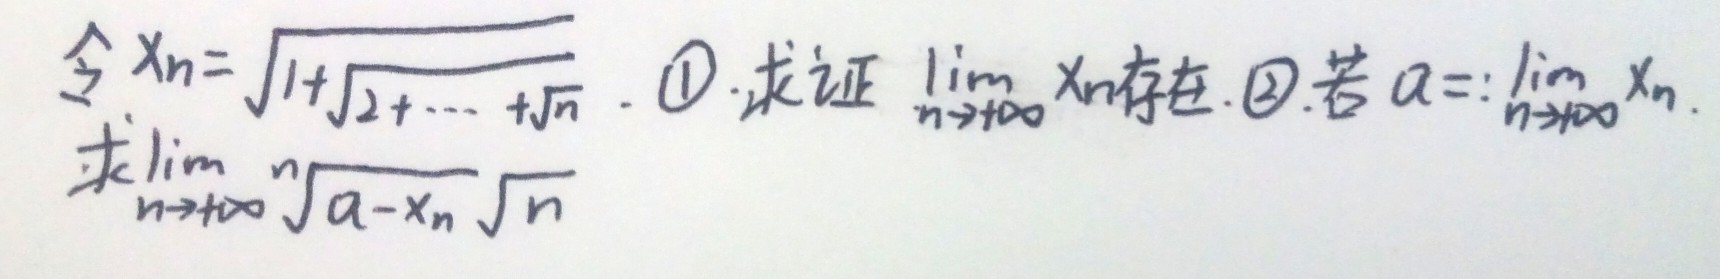 令 xₙ=√(1+√(2+⋯+√n)). ①.求证 lim_{n→+∞} xₙ存在.②.若 a=:lim_{n→+∞} xₙ.
求 lim_{n→+∞} ⁿ√(a-xₙ) √n